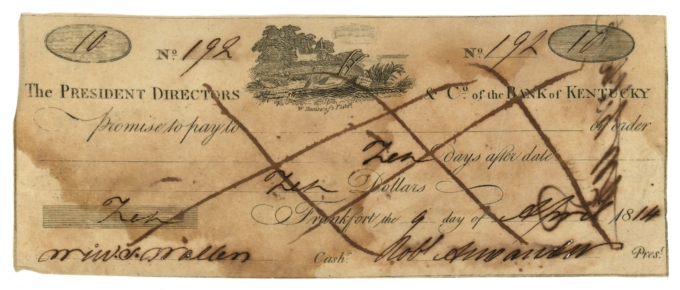 10 No. 192 No. 192 10
The PRESIDENT DIRECTORS & Co. of the BANK of KENTUCKY
Promise to pay to or order
Ten days after date
Ten Dollars
Ten Frankfort, the 9 day of April 1814
Cashr. Robt Prest.